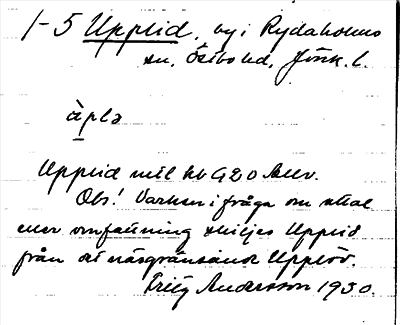 1-5 Upplid, by i Rydaholms
sn, Östbo hd, Jönk. l.
àplə
Upplid mtl kb G20 Au v.
Obs! Varken i fråga om uttal
eller omfattning skiljes Upplid
från det näsgränsande Upplöv.
Fritz Andersson 1930.